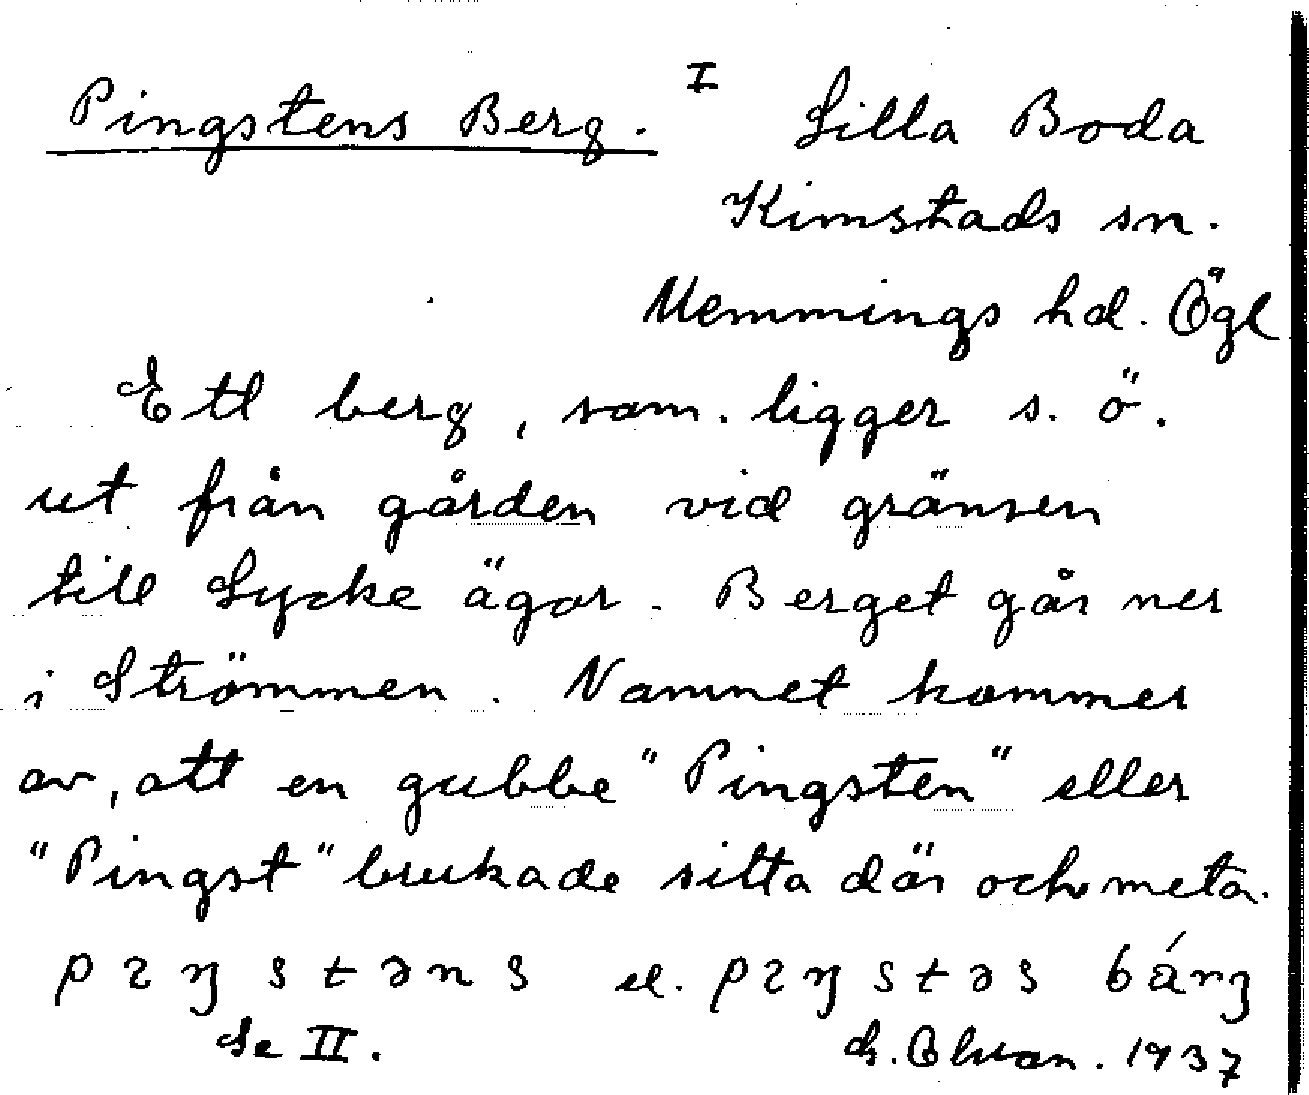 Pingstens Berg. I Lilla Boda
Kimstads sn.
Memmings hd. Ögl
Ett berg, som. ligger s. ö.
ut från gården vid gränsen
till Lycke ägor. Berget går ner
i Strömmen. Namnet kommer
av, att en gubbe "Pingsten" eller
"Pingst" brukade sitta där och meta.
el.
Se II. 1937